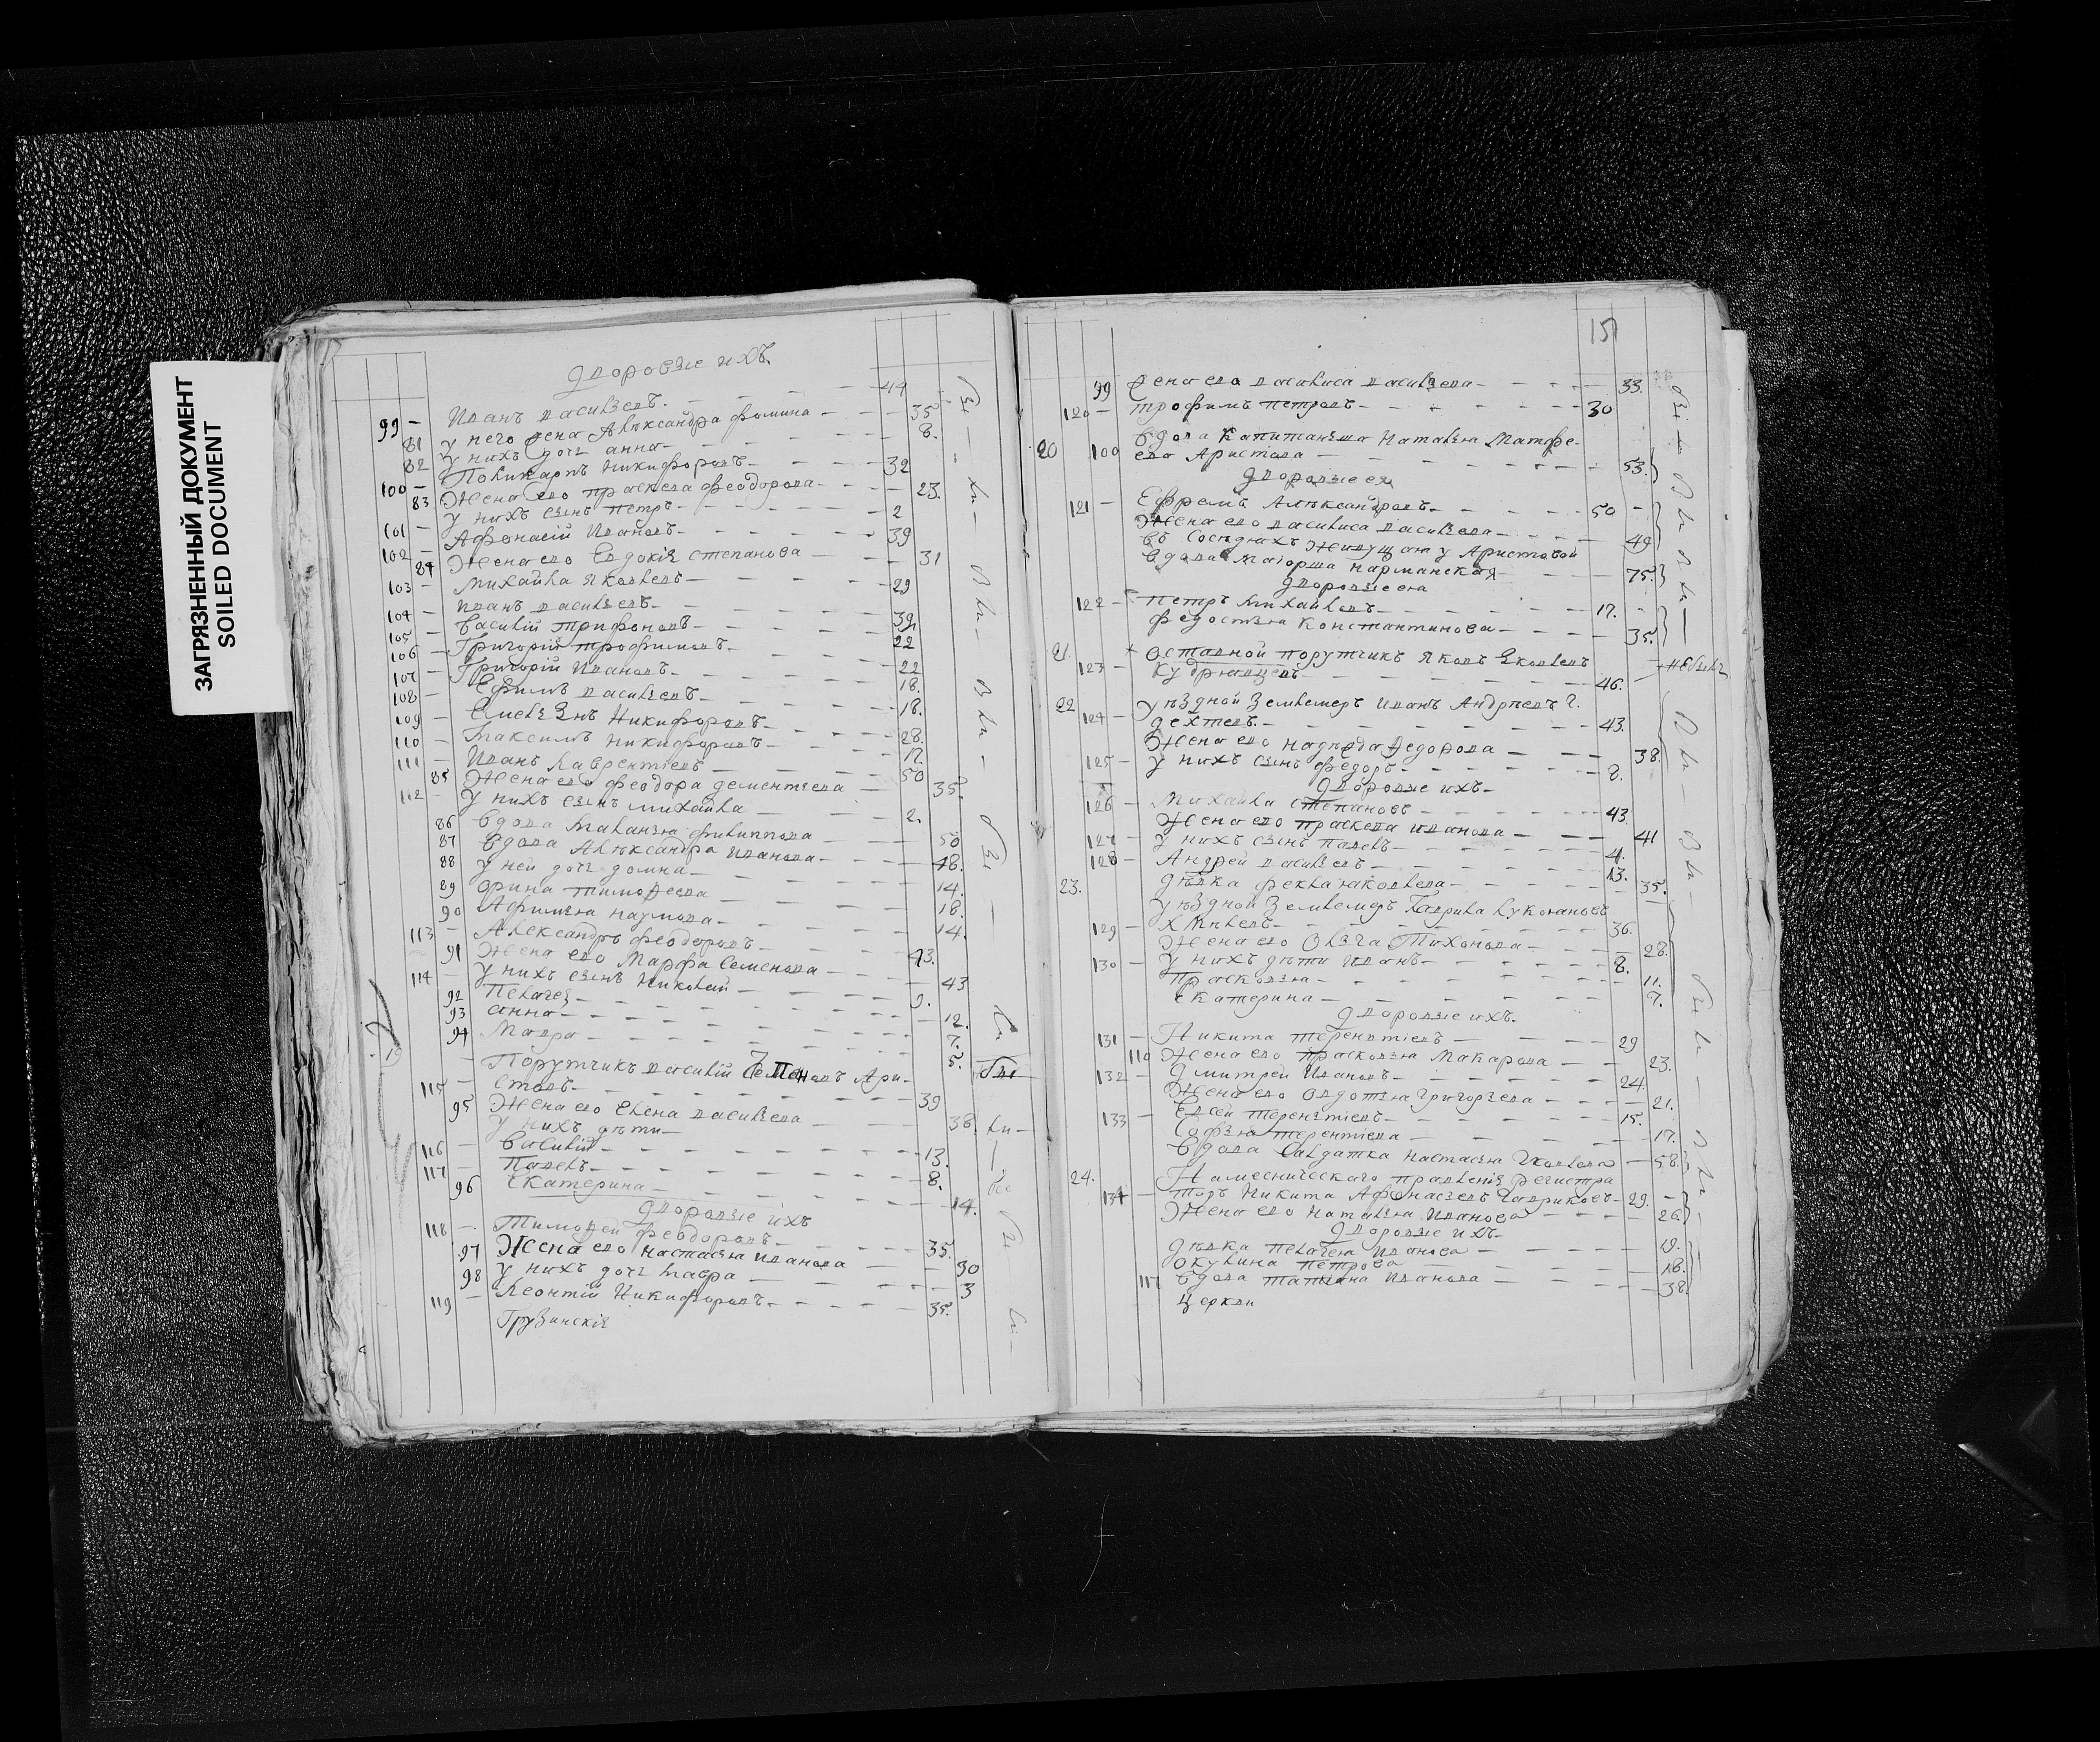 ЗАГРЯЗНЕННЫЙ ДОКУМЕНТ
SOILED DOCUMENT
дворовые ихъ
99 – Иванъ васильевъ – 44
81 у него жена Александра фомина – 35
82 у нихъ дочь анна – 8.
100 – Поликарпъ никифоровъ – 32
83 Жена ево праскева феодорова – 23.
101 – у нихъ сынъ петръ – 2
102 – Афонасій Ивановъ – 39
84 Жена ево Евдокія степанова – 31
103 – михайла яковлевъ – 29
104 – иванъ васильевъ – 39
105 – василій трифоновъ – 22
106 – Григорій трофимовъ – 22
107 – Григорій ивановъ – 18.
108 – Ефимъ васильевъ – 18.
109 – Емельянъ никифоровъ – 28.
110 – максимъ никифоровъ – 17.
111 – Иванъ лаврентіевъ – 50
85 Жена ево феодора дементьева – 35.
112 у нихъ сынъ михайла – 2.
86 вдова маланья филиппова – 50
87 вдова Александра иванова – 48.
88 у ней дочь домна – 14.
89 орина тимофеева – 18.
90 Афимья наумова – 14.
113 – Александръ феодоровъ – 43.
91 Жена ево марфа семенова – 43
114 у нихъ сынъ николай – 9.
92 Пелагея – 12.
93 анна – 7.
94 мавра – 5.
19
Порутчикъ василій Ари-
115 – стовъ – 39
95 Жена ево елена васильева – 38.
у нихъ дѣти
116 – василій – 13.
117 – павелъ – 8.
96 екатерина – 14.
дворовые ихъ
118 – Тимофей феодоровъ – 35.
97 Жена ево настасья иванова – 30
98 у нихъ дочь мавра – 3
119 – Леонтій никифоровъ – 35.
Грузинскія
151
99 жена ево василиса васильева – 33.
120 – трофимъ петровъ – 30
вдова капитанша наталья матфе-
20 100 ева аристова – 53.
дворовые ея
121 – Ефремъ Александровъ – 50
Жена ево василиса васильева – 49
въ соседяхъ живущая у Аристовой
вдова маіорша нарманская – 75.
дворовые ея
122 – петръ михайлевъ – 17.
федосья константинова – 35.
21. отставной порутчикъ яковъ яковлевъ
123 – кудрявцевъ – 46. – небылъ
22 уѣздной землемеръ иванъ Андрѣевъ
124 – дехтевъ – 43.
Жена ево надежда федорова – 38.
125 – у нихъ сынъ федоръ – 8.
дворовые ихъ
126 – михайла степановъ – 43.
Жена ево праскева иванова – 41
127 – у нихъ сынъ павелъ – 4.
128 – Андрей васильевъ – 13.
дѣвка фекла яковлева – 35.
23. уѣздной землемеръ Гаврила лукояновъ
129 – хмилевъ – 36.
Жена ево Ольга Тихонова – 28.
130 – у нихъ дѣти иванъ – 8.
прасковья – 11.
екатерина – 7.
дворовые ихъ.
131 – Никита терентіевъ – 29
110 Жена ево прасковья макарова – 23.
132 – Дмитрей ивановъ – 24.
Жена ево овдотья григорьева – 21.
133 – Евсей терентіевъ – 15.
софья терентіева – 17.
вдова салдатка настасья яковлева – 58.
24. Намесническаго правленія регистра
134 – торъ никита Афонасьевъ Гавриковъ – 29.
Жена ево наталья иванова – 26.
дворовые ихъ
дѣвка пелагея иванова – 19.
окулина петрова – 16.
117 вдова татіяна иванова – 38.
церкви